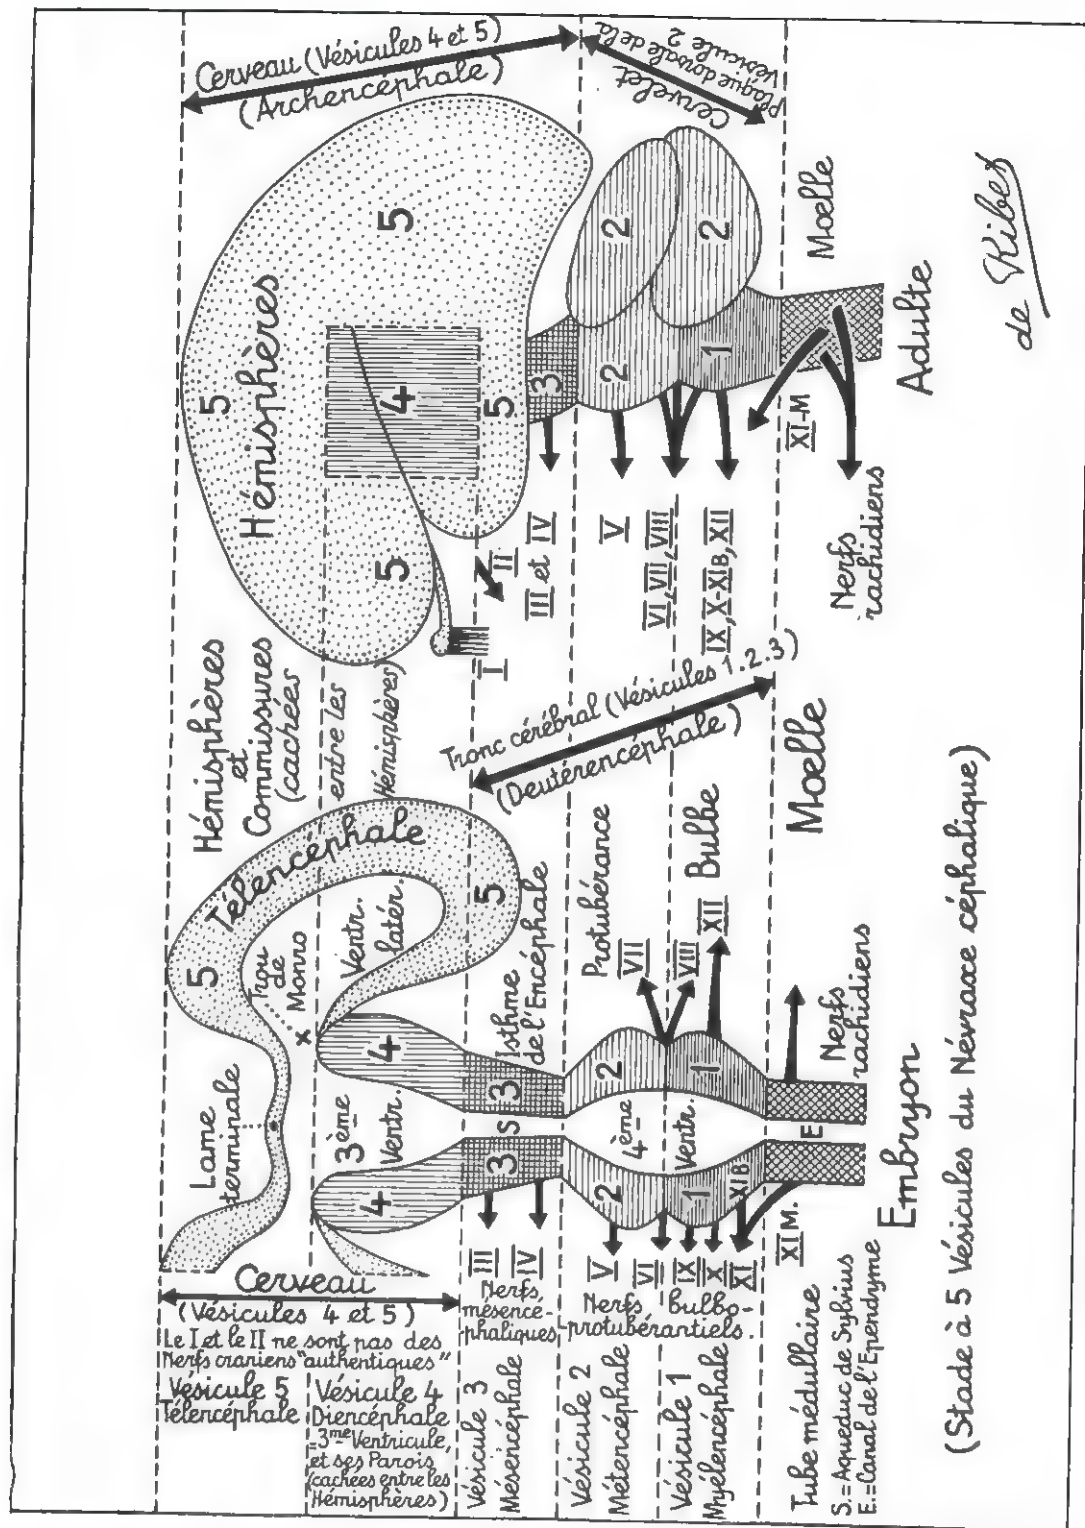 Cerveau (Vésicules 4 et 5)
(Archencéphale)
Cervelet
Plaque dorsale de la
Vésicule 2
Hémisphères
5
5
5
5
4
3
2
2
2
1
Moelle
I
II
III et IV
V
VI, VII, VIII
IX, X-XIB, XII
XI-M
Nerfs
rachidiens
Adulte
de Ribet
Hémisphères
et
Commissures
(cachées
entre les
Hémisphères)
Tronc cérébral (Vésicules 1.2.3)
(Deutérencéphale)
Télencéphale
5
5
Trou
de
Monro
x
Ventr.
latér.
Lame
terminale
3ème
Ventr.
4
4
Isthme
de l'Encéphale
3
S
3
Protubérance
VII
VIII
XII
Bulbe
2
4ème
Ventr.
2
1
1
XIB
Moelle
E
Nerfs
rachidiens
Cerveau
(Vésicules 4 et 5)
III
IV
Nerfs
mésencé-
phaliques
V
VI
IX
X
XI
XI M.
Nerfs bulbo-
-protubérantiels.
Le I et le II ne sont pas des
Nerfs craniens "authentiques"
Vésicule 5
Télencéphale
Vésicule 4
Diencéphale
=3me Ventricule,
et ses Parois
(cachées entre les
Hémisphères)
Vésicule 3
Mésencéphale
Vésicule 2
Métencéphale
Vésicule 1
Myélencéphale
Tube médullaire
S.=Aqueduc de Sylvius
E.=Canal de l'Ependyme
Embryon
(Stade à 5 Vésicules du Névraxe céphalique)